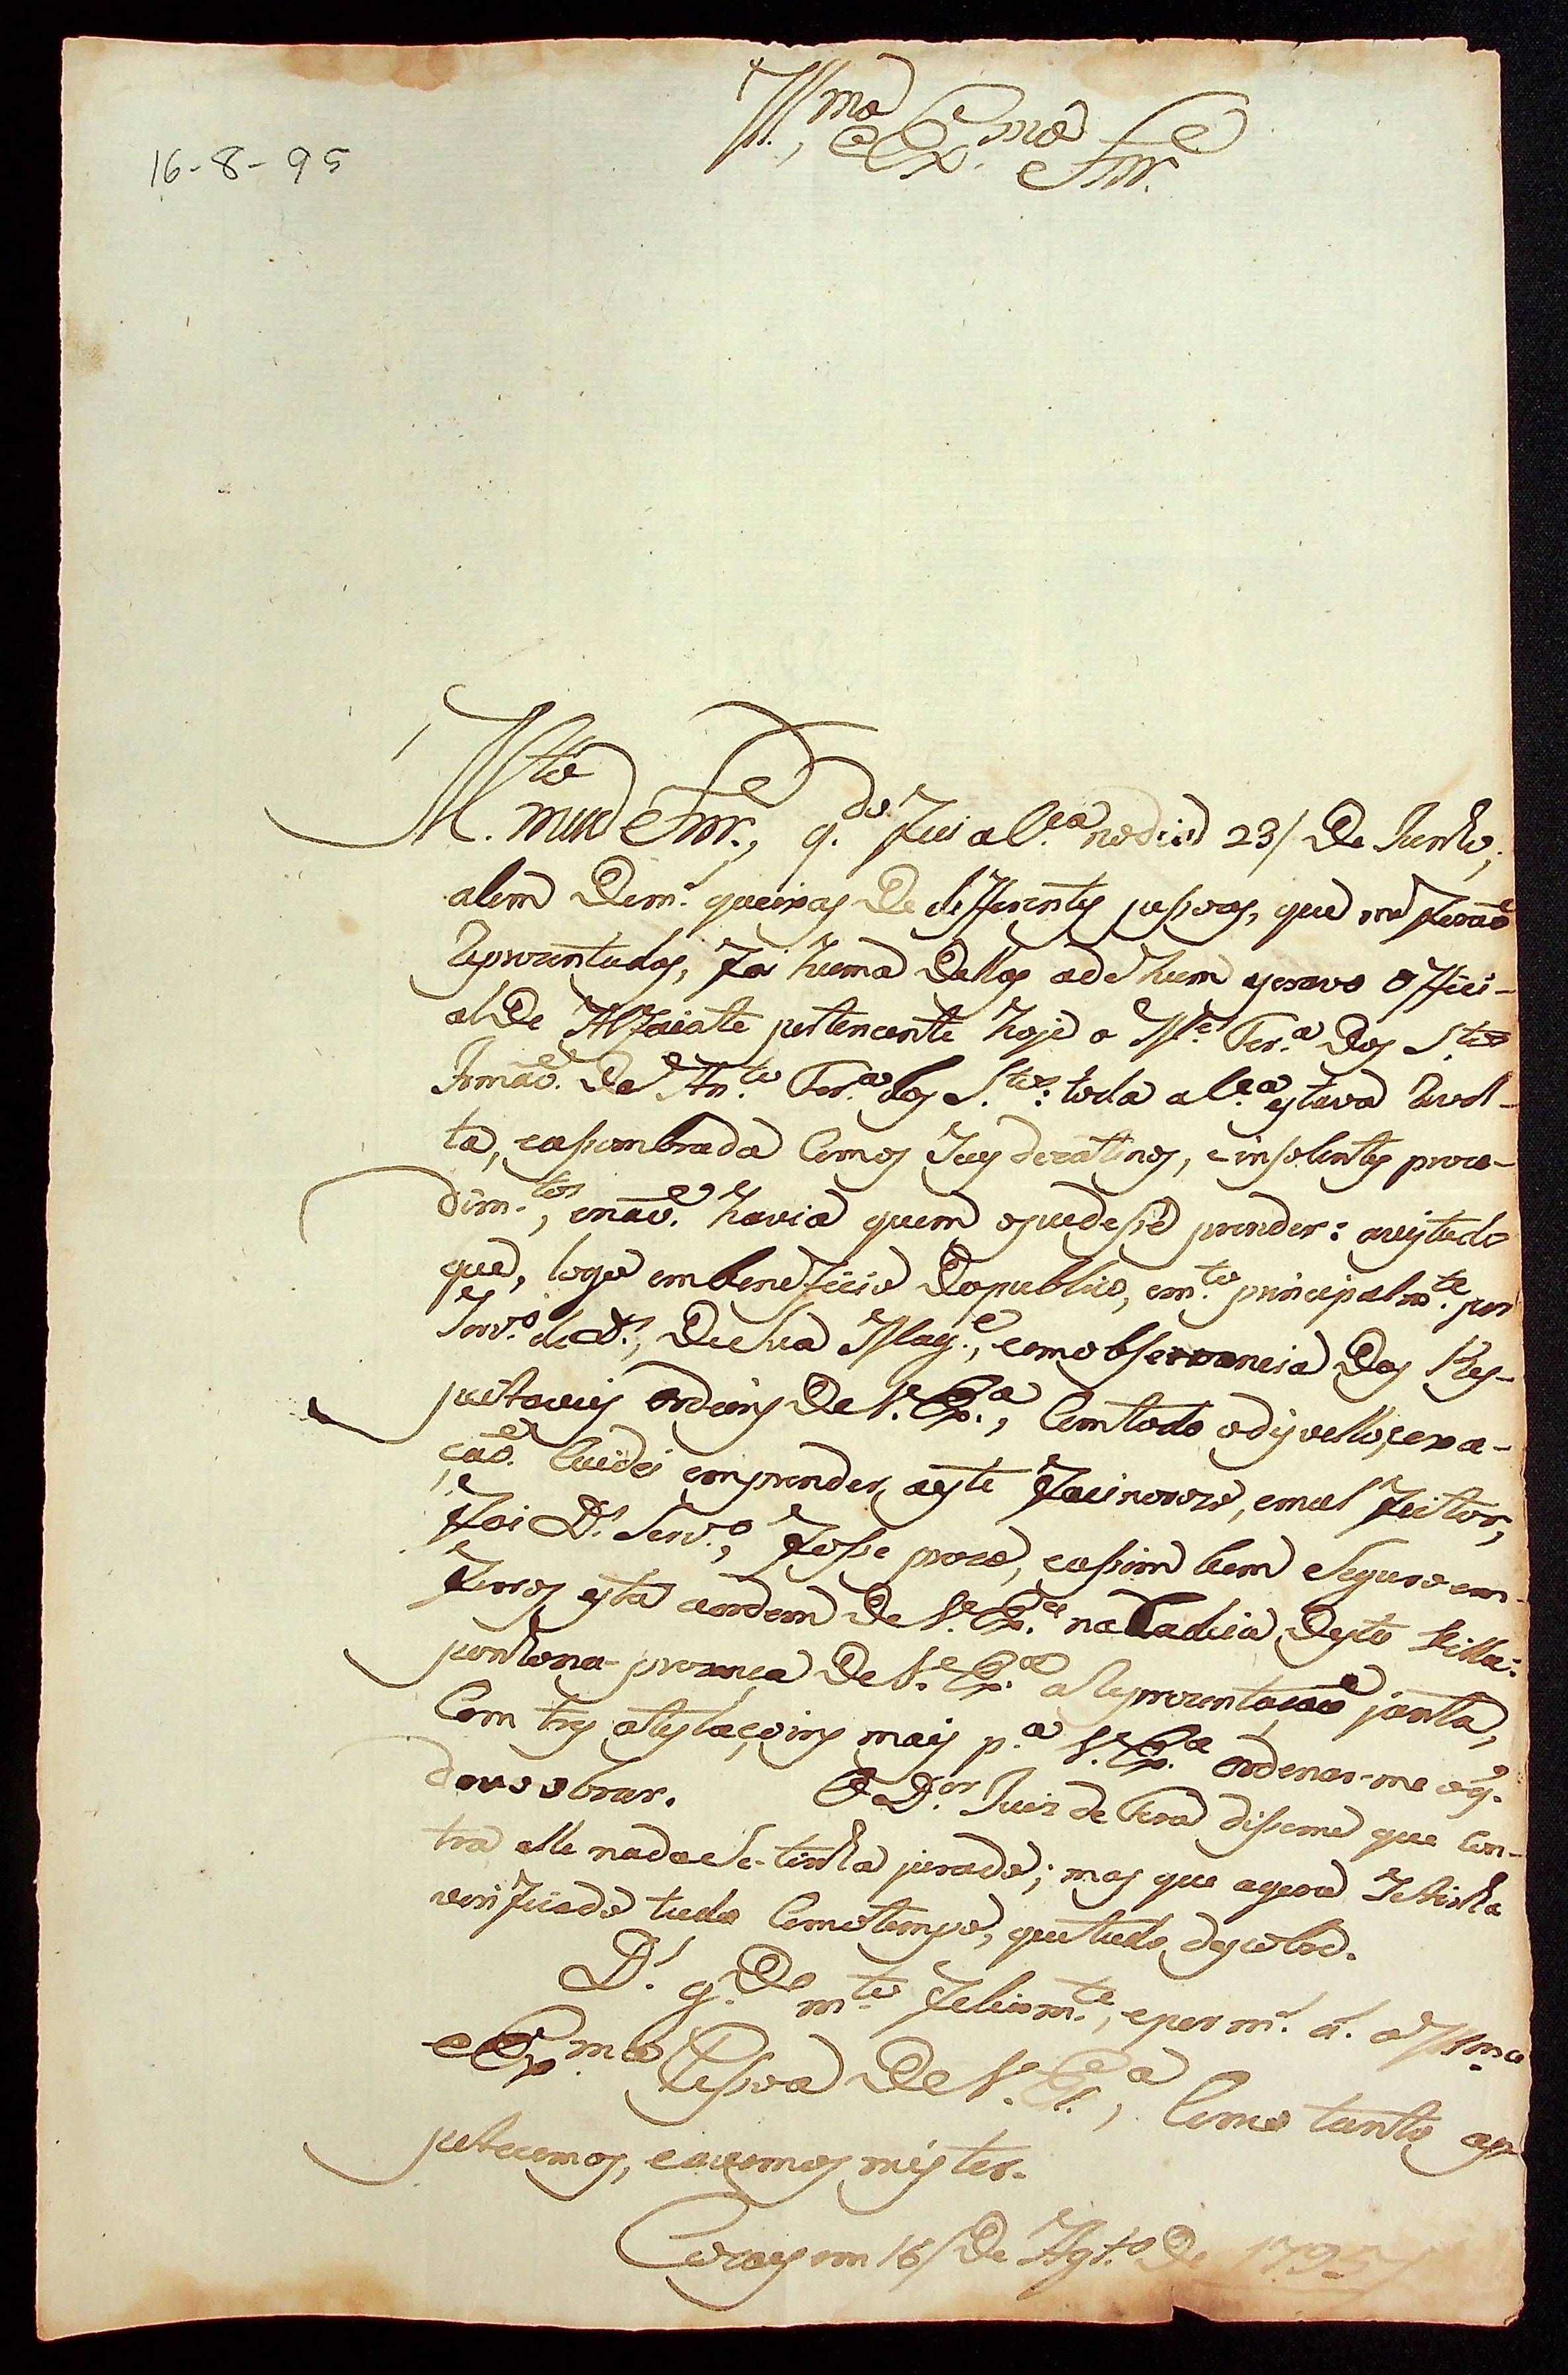 Ill.mo e Ex.mo Snr.
16-8-95
M.to meu Snr., q.do fui a C.ca no dia 23/ de Junho,
alem de m.s queixas de differentes pessoas, que me forão
reprezentadas, foi huma dellas a de hum escravo offici-
al de Alfaiate pertencente hoje a M.el Fer.a dos S.tos
Irmão de An.to Fer.a dos S.tos: toda a C.ca estava revol-
ta, e assombrada com os seus dezatinos, e insolentes proce-
dim.tos, e não havia quem o pudesse prender: a vista do
que, logo em beneficio do publico, e m.to principalm.te por
serv.o de D.s, de Sua Mag.e, e com observancia das Res-
peitaveis ordens de V. Ex.a, com todo o disvello, e exa-
ção cuidei em prender a este facinorozo, e mal feitor,
foi D.s Serv.o, fosse prezo, e assim bem Seguro em
ferros esta a ordem de V. Ex.a na Cadeia desta Villa:
ponho na prezença de V. Ex.a a Reprezentação junta,
Com tres atestaçoins mais p.a V. Ex.a ordenar-me o q.
devo obrar. O D.or Juiz de Fora disseme que con-
tra elle nada Se tinha jurado; mas que agora Se tinha
verificado tudo Com o tempo, que tudo descobre.
D.s g.de m.to felizm.te, e por m.s a. a Ill.ma
e Ex.ma Pessoa de V. Ex.a, Como tanto ap-
petecemos, e avemos mister.
16/ de Agt.o de 1795/